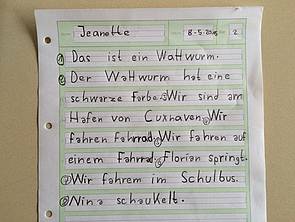 Jeanette 8-5.2015 2
① Das ist ein Wattwurm.
② Der Wattwurm hat eine
schwarze Farbe. ③ Wir sind am
Hafen von Cuxhaven. ④ Wir
fahren Fahrrad. ⑤ Wir fahren auf
einem Fahrrad. ⑥ Florian springt.
⑦ Wir fahren im Schulbus.
⑧ Nina schaukelt.